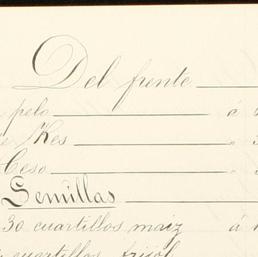 Del frente
pelo á
Res "
Ceso "
Semillas
30 cuartillos maiz á
cuartillos frijol